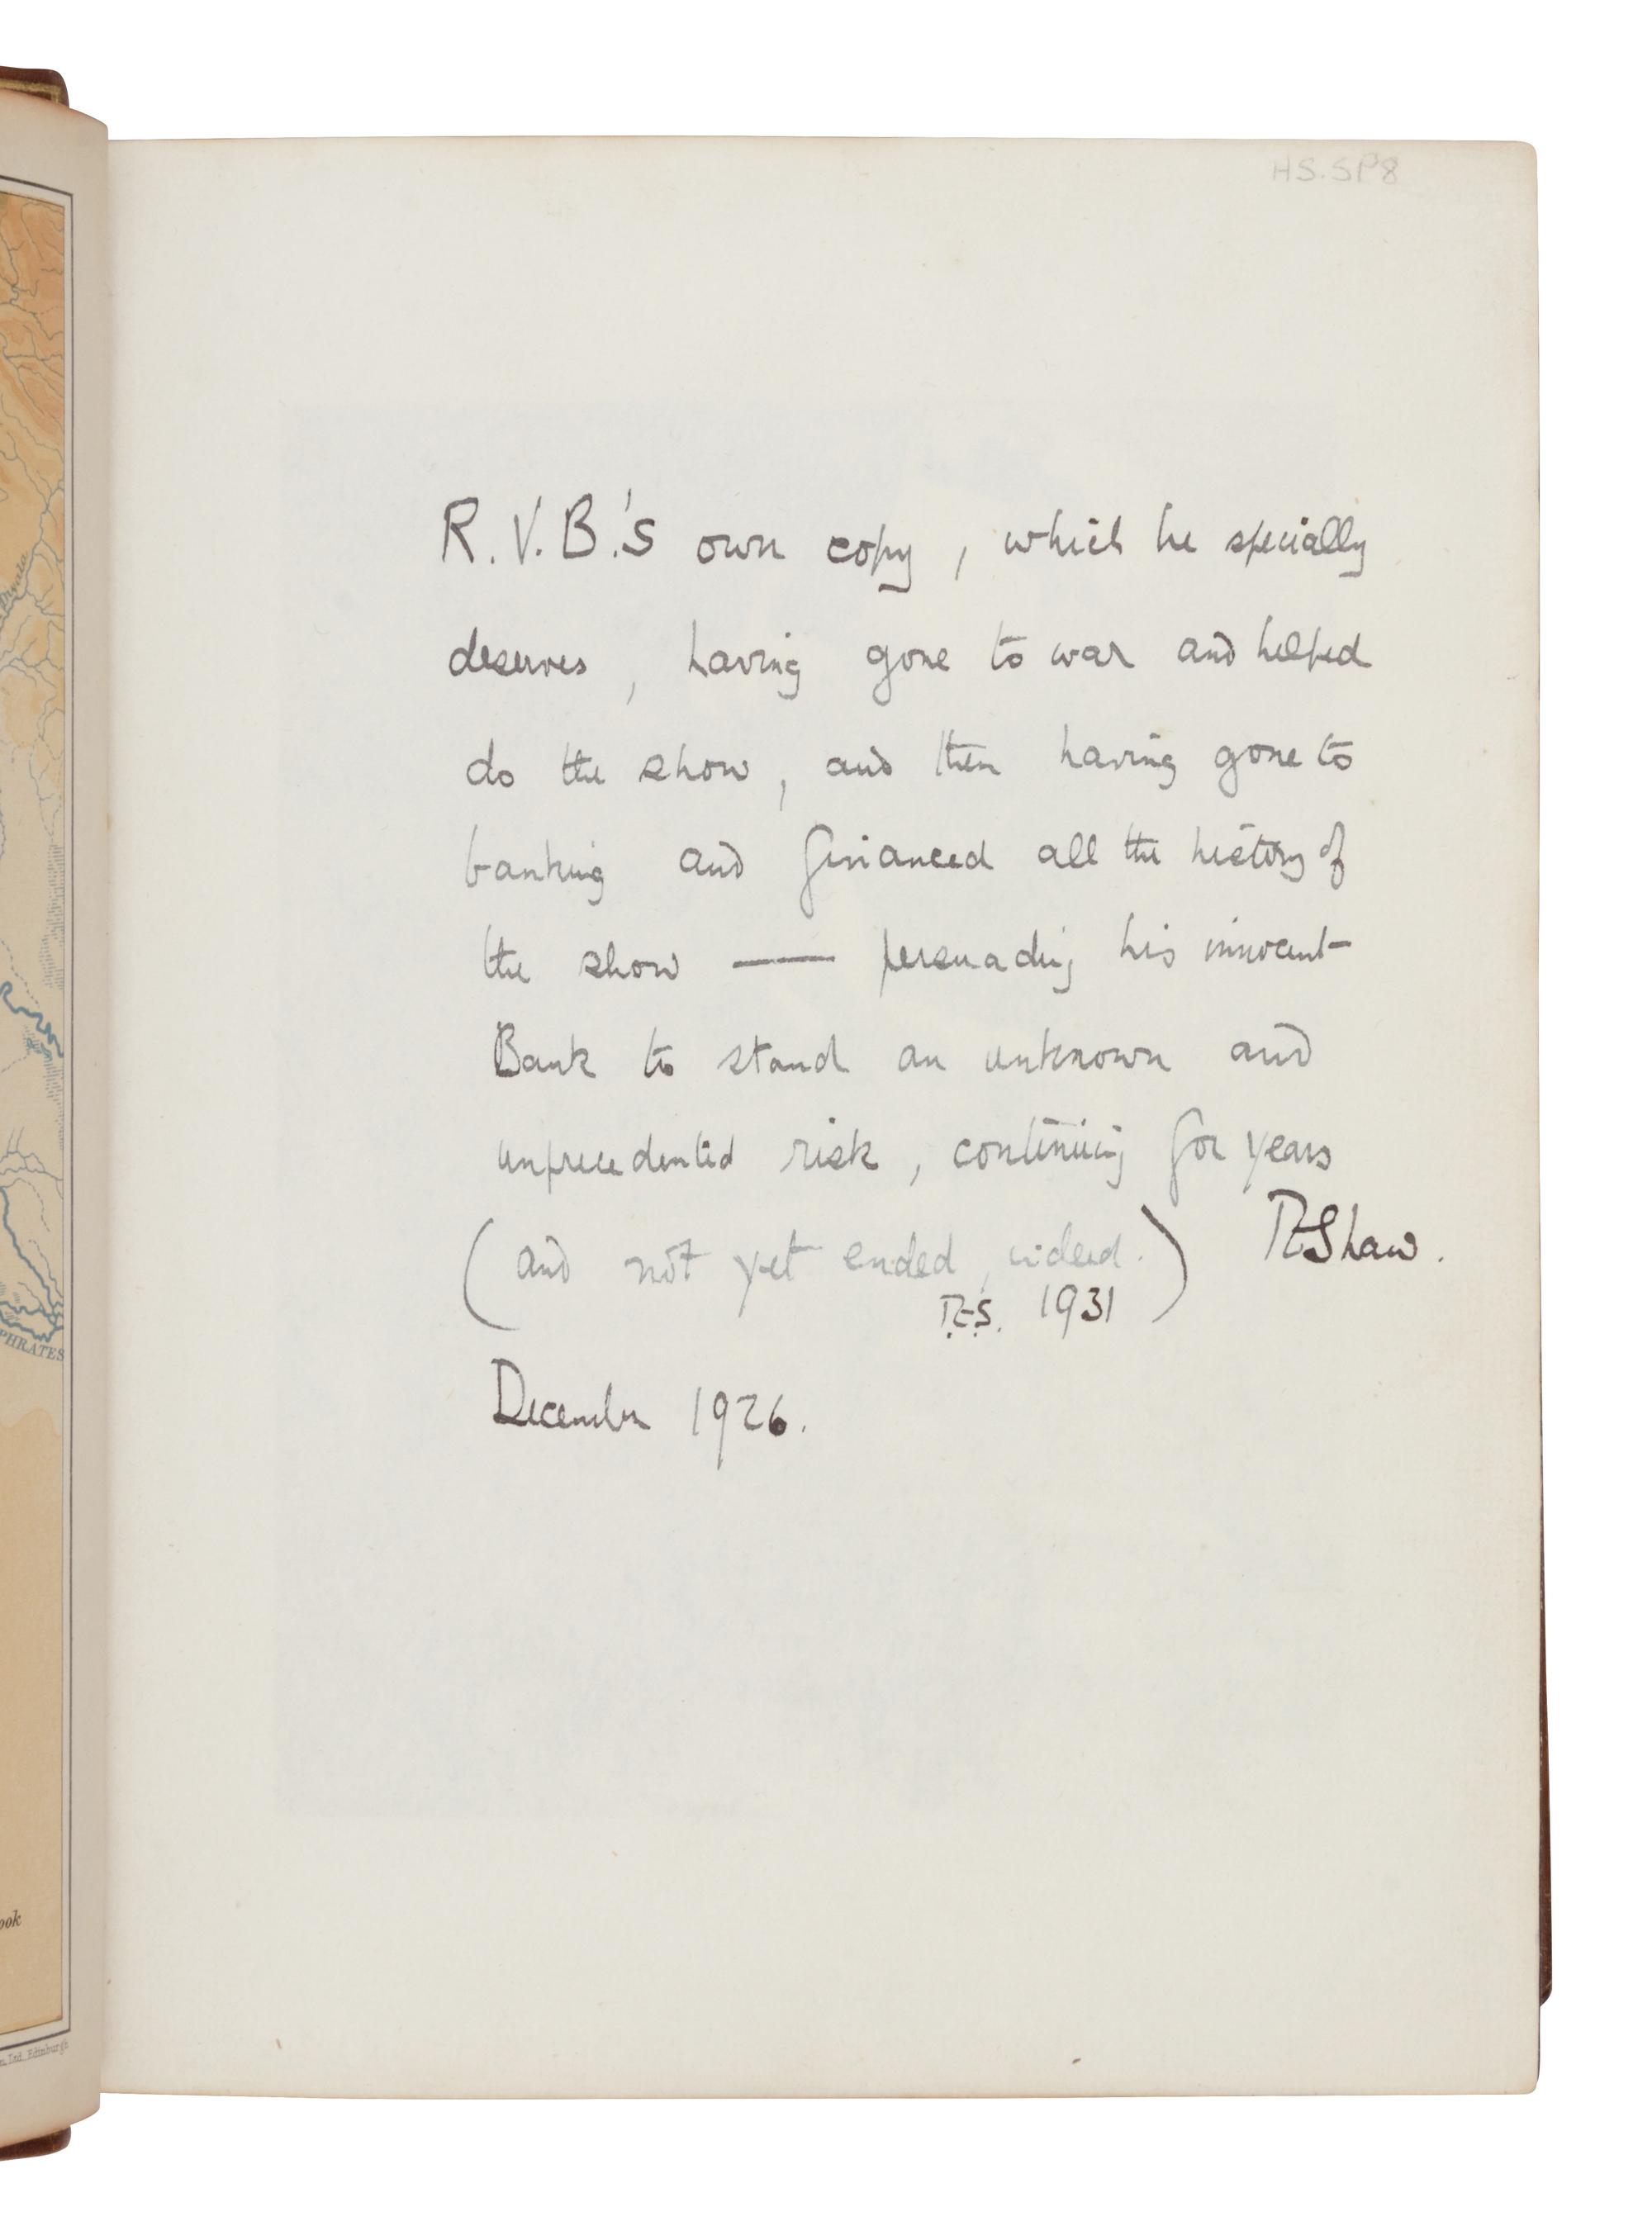 HS.SP8
R.V.B.'s own copy, which he specially
deserves, having gone to war and helped
do the show, and then having gone to
banking and financed all the history of
the show — persuading his innocent
Bank to stand an unknown and
unprecedented risk, continuing for years
(and not yet ended, indeed.) TEShaw.
T.E.S. 1931
December 1926.
PHRATES
ook
Ltd. Edinburgh